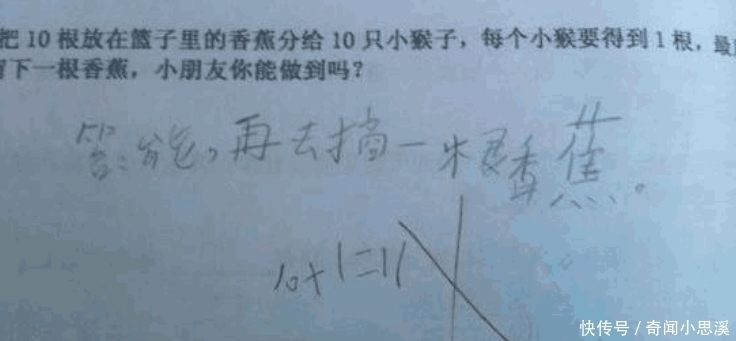 把 10 根放在篮子里的香蕉分给 10 只小猴子，每个小猴要得到 1 根，最
下一根香蕉，小朋友你能做到吗？
答：能，再去摘一根香蕉。
10+1=11
快传号 / 奇闻小思溪